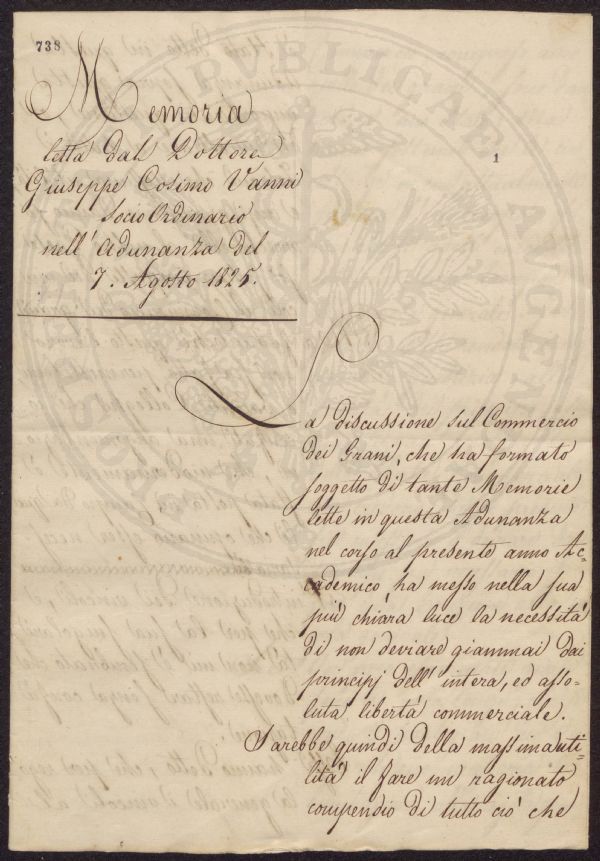 738
1
Memoria
letta dal Dottore
Giuseppe Cosimo Vanni
Socio Ordinario
nell' Adunanza del
7. Agosto 1825.
La discussione sul Commercio
dei Grani, che ha formato
soggetto di tante Memorie
lette in questa Adunanza
nel corso al presente anno Ac=
cademico, ha messo nella sua
più chiara luce la necessità
di non deviare giammai dai
principj dell' intera, ed asso=
luta libertà commerciale.
Sarebbe quindi della massima uti=
lità il fare un ragionato
compendio di tutto ciò che
PUBLICAE
AUGEN